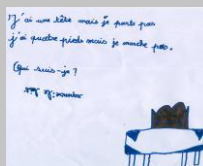 J'ai une tête mais je parle pas
j'ai quatre pieds mais je marche pas.
Qui suis-je ?